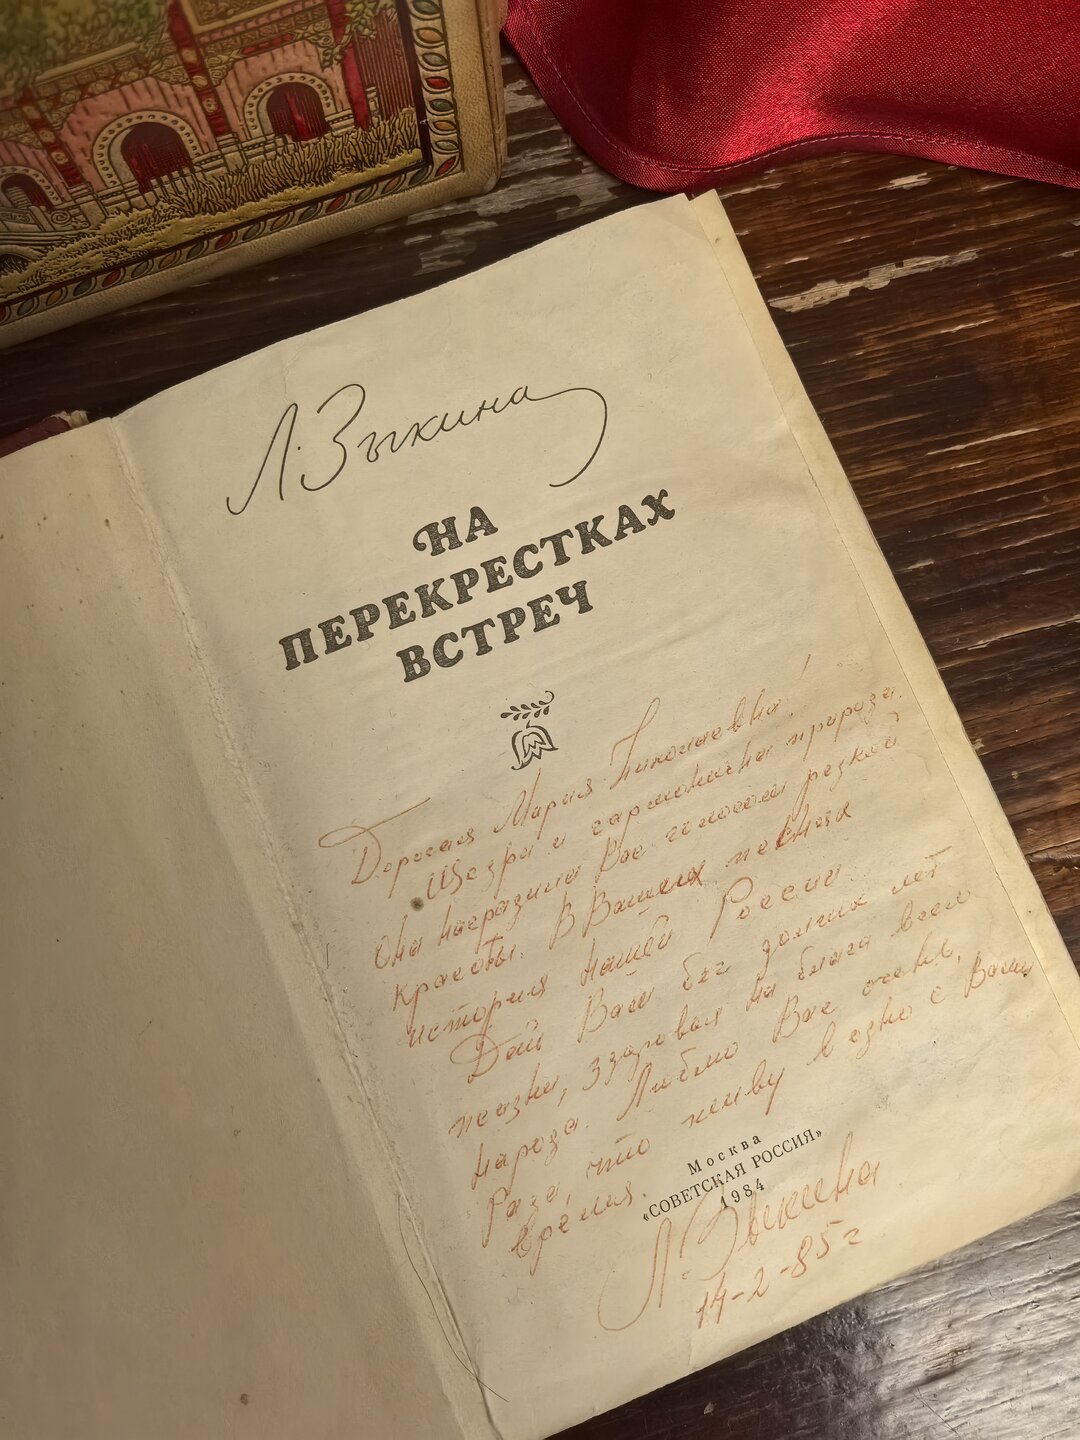 Л. Зыкина
НА
ПЕРЕКРЕСТКАХ
ВСТРЕЧ
Дорогая Мария Николаевна!
Щедра и гармонична природа.
Она наградила Вас голосом редкой
красоты. В Ваших песнях
история нашей России.
Дай Вам бог долгих лет
жизни, здоровья на благо всего
народа. Люблю Вас очень,
рада, что живу в одно с Вами
время.
Москва
«СОВЕТСКАЯ РОССИЯ»
1984
Л. Зыкина
14-2-85г.